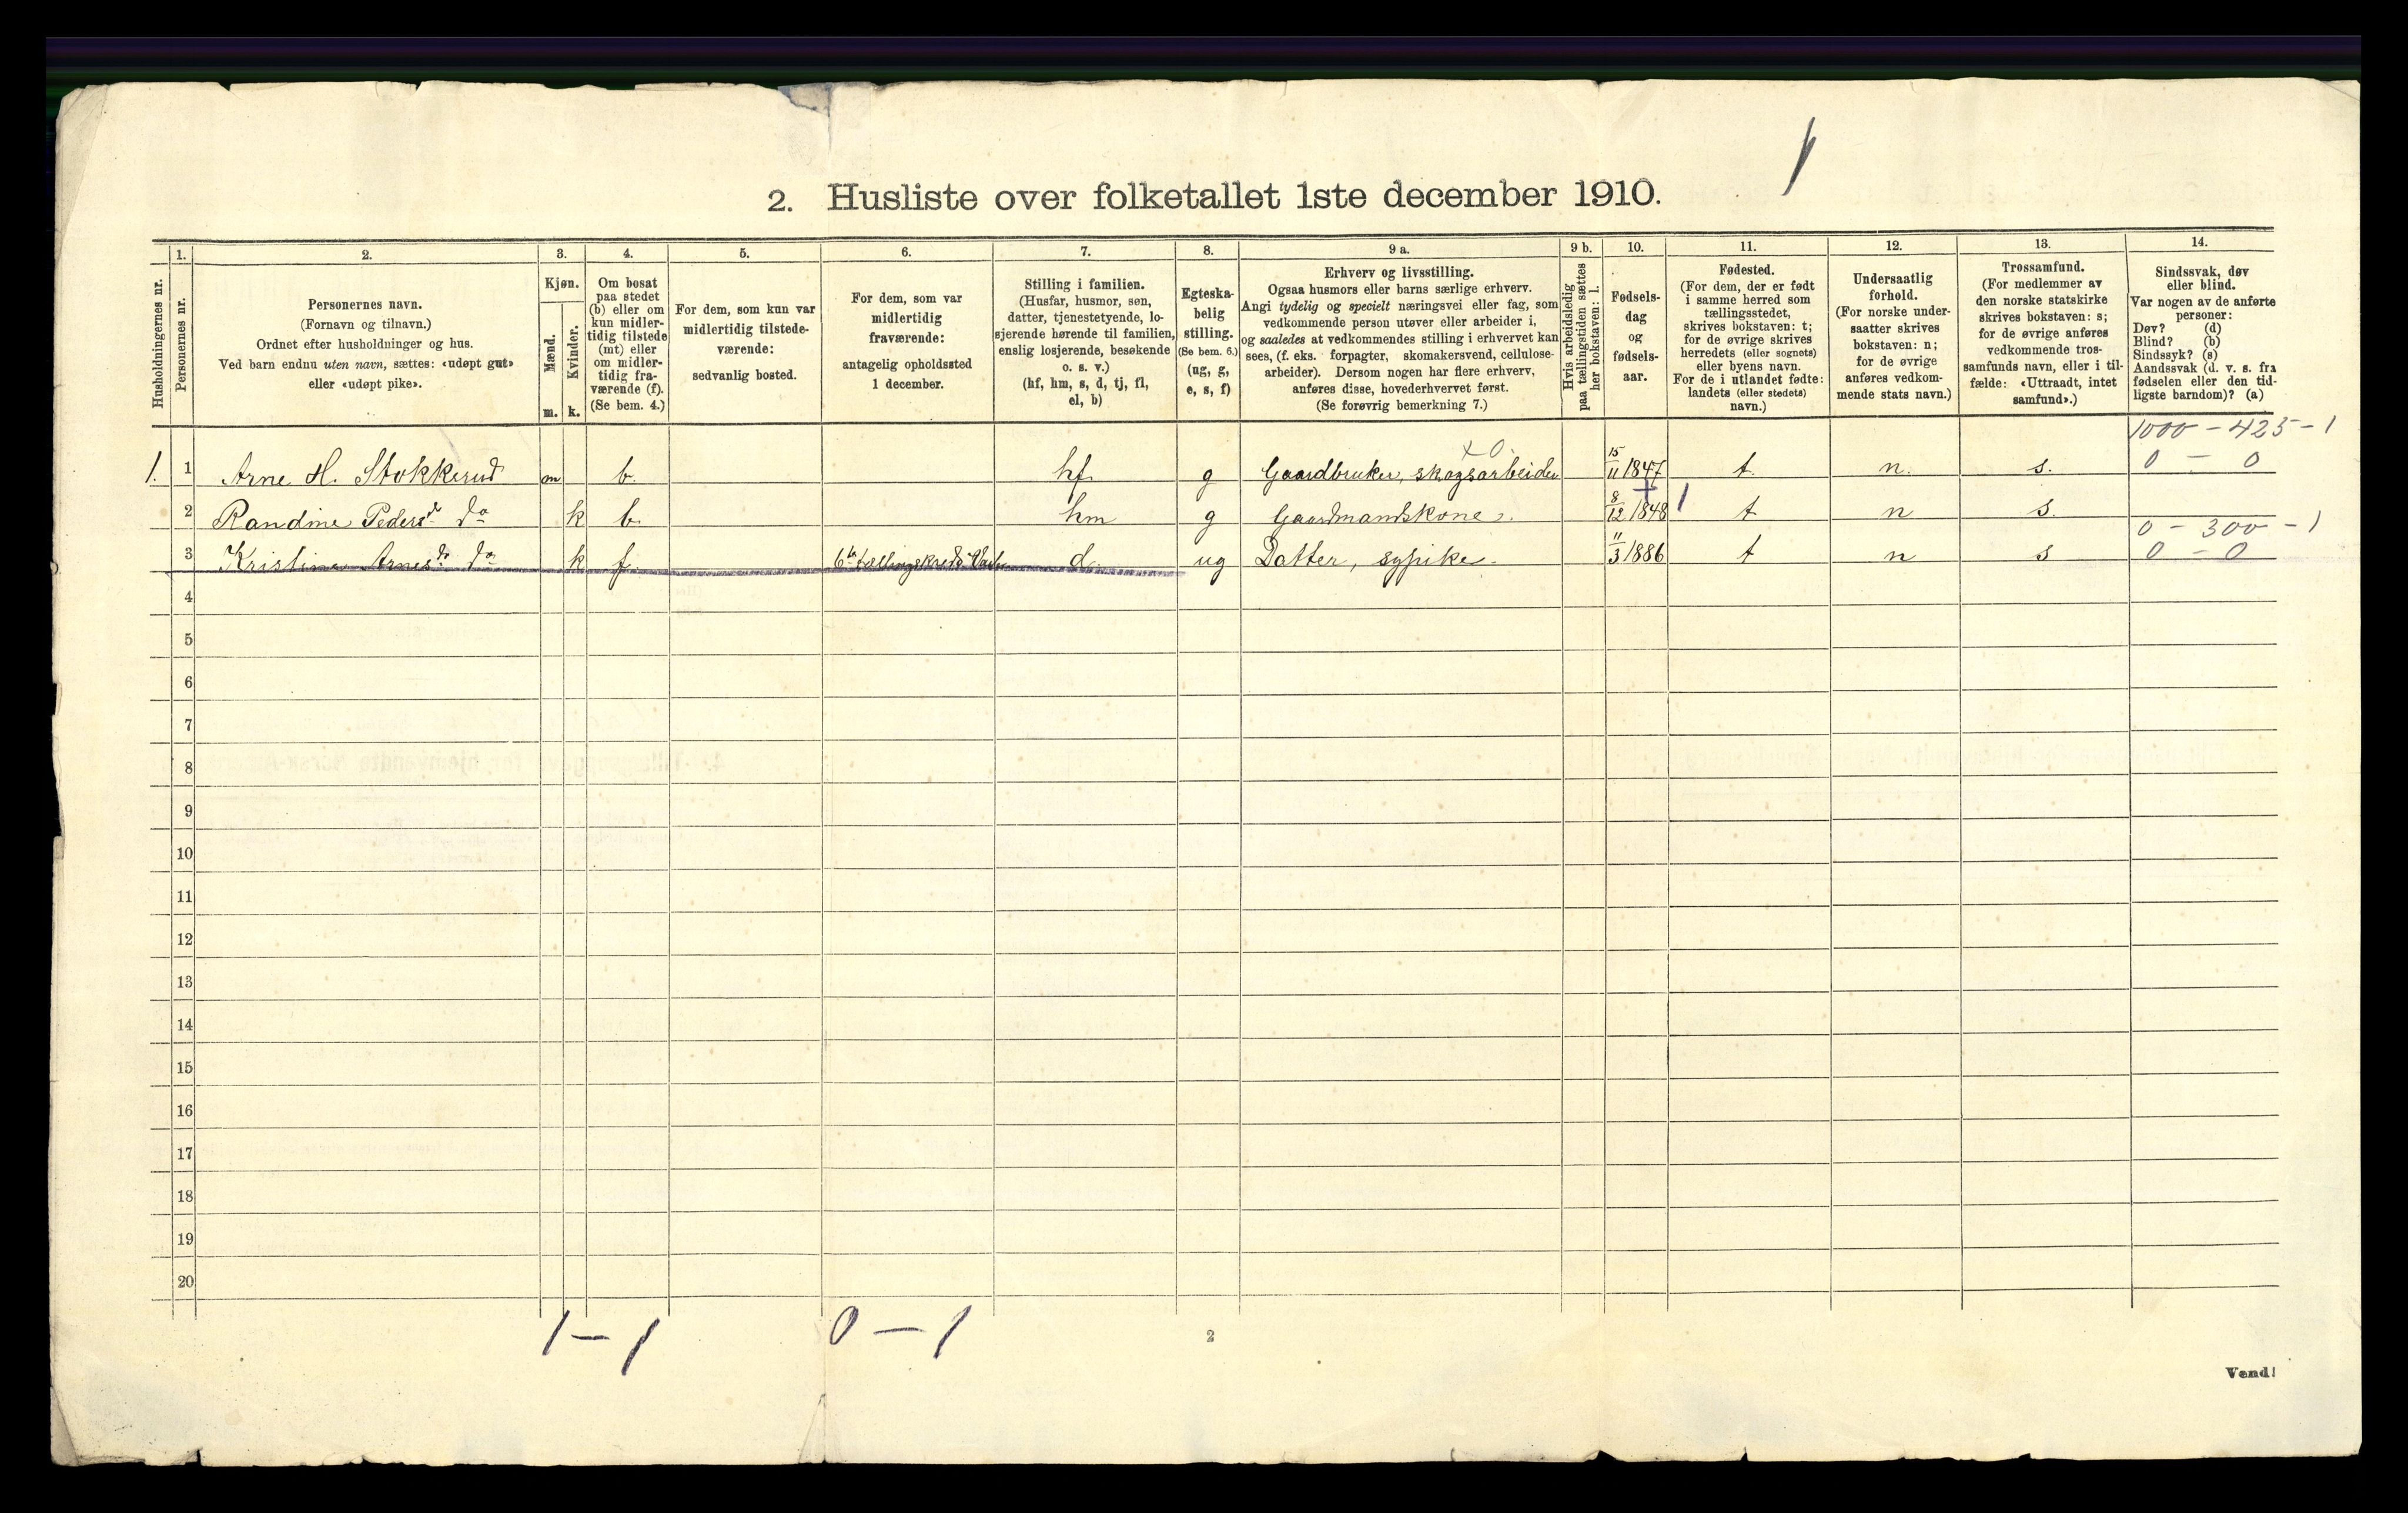 2. Husliste over folketallet 1ste december 1910.
Husholdningernes nr.
1.
Personernes nr.
2.
Personernes navn.
(Fornavn og tilnavn.)
Ordnet efter husholdninger og hus.
Ved barn endnu uten navn, sættes: «udøpt gut»
eller «udøpt pike».
3.
Kjøn.
Mænd.
Kvinder.
m. k.
4.
Om bosat
paa stedet
(b) eller om
kun midler-
tidig tilstede
(mt) eller
om midler-
tidig fra-
værende (f).
(Se bem. 4.)
5.
For dem, som kun var
midlertidig tilstede-
værende:
sedvanlig bosted.
6.
For dem, som var
midlertidig
fraværende:
antagelig opholdssted
1 december.
7.
Stilling i familien.
(Husfar, husmor, søn,
datter, tjenestetyende, lo-
sjerende hørende til familien,
enslig losjerende, besøkende
o. s. v.)
(hf, hm, s, d, tj, fl,
el, b)
8.
Egteska-
belig
stilling.
(Se bem. 6.)
(ug, g,
e, s, f)
9 a.
Erhverv og livsstilling.
Ogsaa husmors eller barns særlige erhverv.
Angi tydelig og specielt næringsvei eller fag, som
vedkommende person utøver eller arbeider i,
og saaledes at vedkommendes stilling i erhvervet kan
sees, (f. eks. forpagter, skomakersvend, cellulose-
arbeider). Dersom nogen har flere erhverv,
anføres disse, hovederhvervet først.
(Se forøvrig bemerkning 7.)
9 b.
Hvis arbeidsledig
paa tællingstiden sættes
her bokstaven: l.
10.
Fødsels-
dag
og
fødsels-
aar.
11.
Fødested.
(For dem, der er født
i samme herred som
tællingsstedet,
skrives bokstaven: t;
for de øvrige skrives
herredets (eller sognets)
eller byens navn.
For de i utlandet fødte:
landets (eller stedets)
navn.)
12.
Undersaatlig
forhold.
(For norske under-
saatter skrives
bokstaven: n;
for de øvrige
anføres vedkom-
mende stats navn.)
13.
Trossamfund.
(For medlemmer av
den norske statskirke
skrives bokstaven: s;
for de øvrige anføres
vedkommende tros-
samfunds navn, eller i til-
fælde: «Uttraadt, intet
samfund».)
14.
Sindssvak, døv
eller blind.
Var nogen av de anførte
personer:
Døv? (d)
Blind? (b)
Sindssyk? (s)
Aandssvak (d. v. s. fra
fødselen eller den tid-
ligste barndom)? (a)
1000 - 425 - 1
x 0
1. 1 Arne H. Stokkerud m b. hf. g Gaardbruker, skogsarbeider 15/11 1847 t. n. s. 0 - 0
2 Randine Pedersd. do k b. hm g Gaardmandskone. 8/12 1848 1 t n s.
0 - 300 - 1
3 Kristine Arnesd. do k f. 6te tællingskreds d. ug Datter, sypike. 11/3 1886 t n s 0 - 0
4
5
6
7
8
9
10
11
12
13
14
15
16
17
18
19
20
1 - 1 0 - 1
2
Vend!